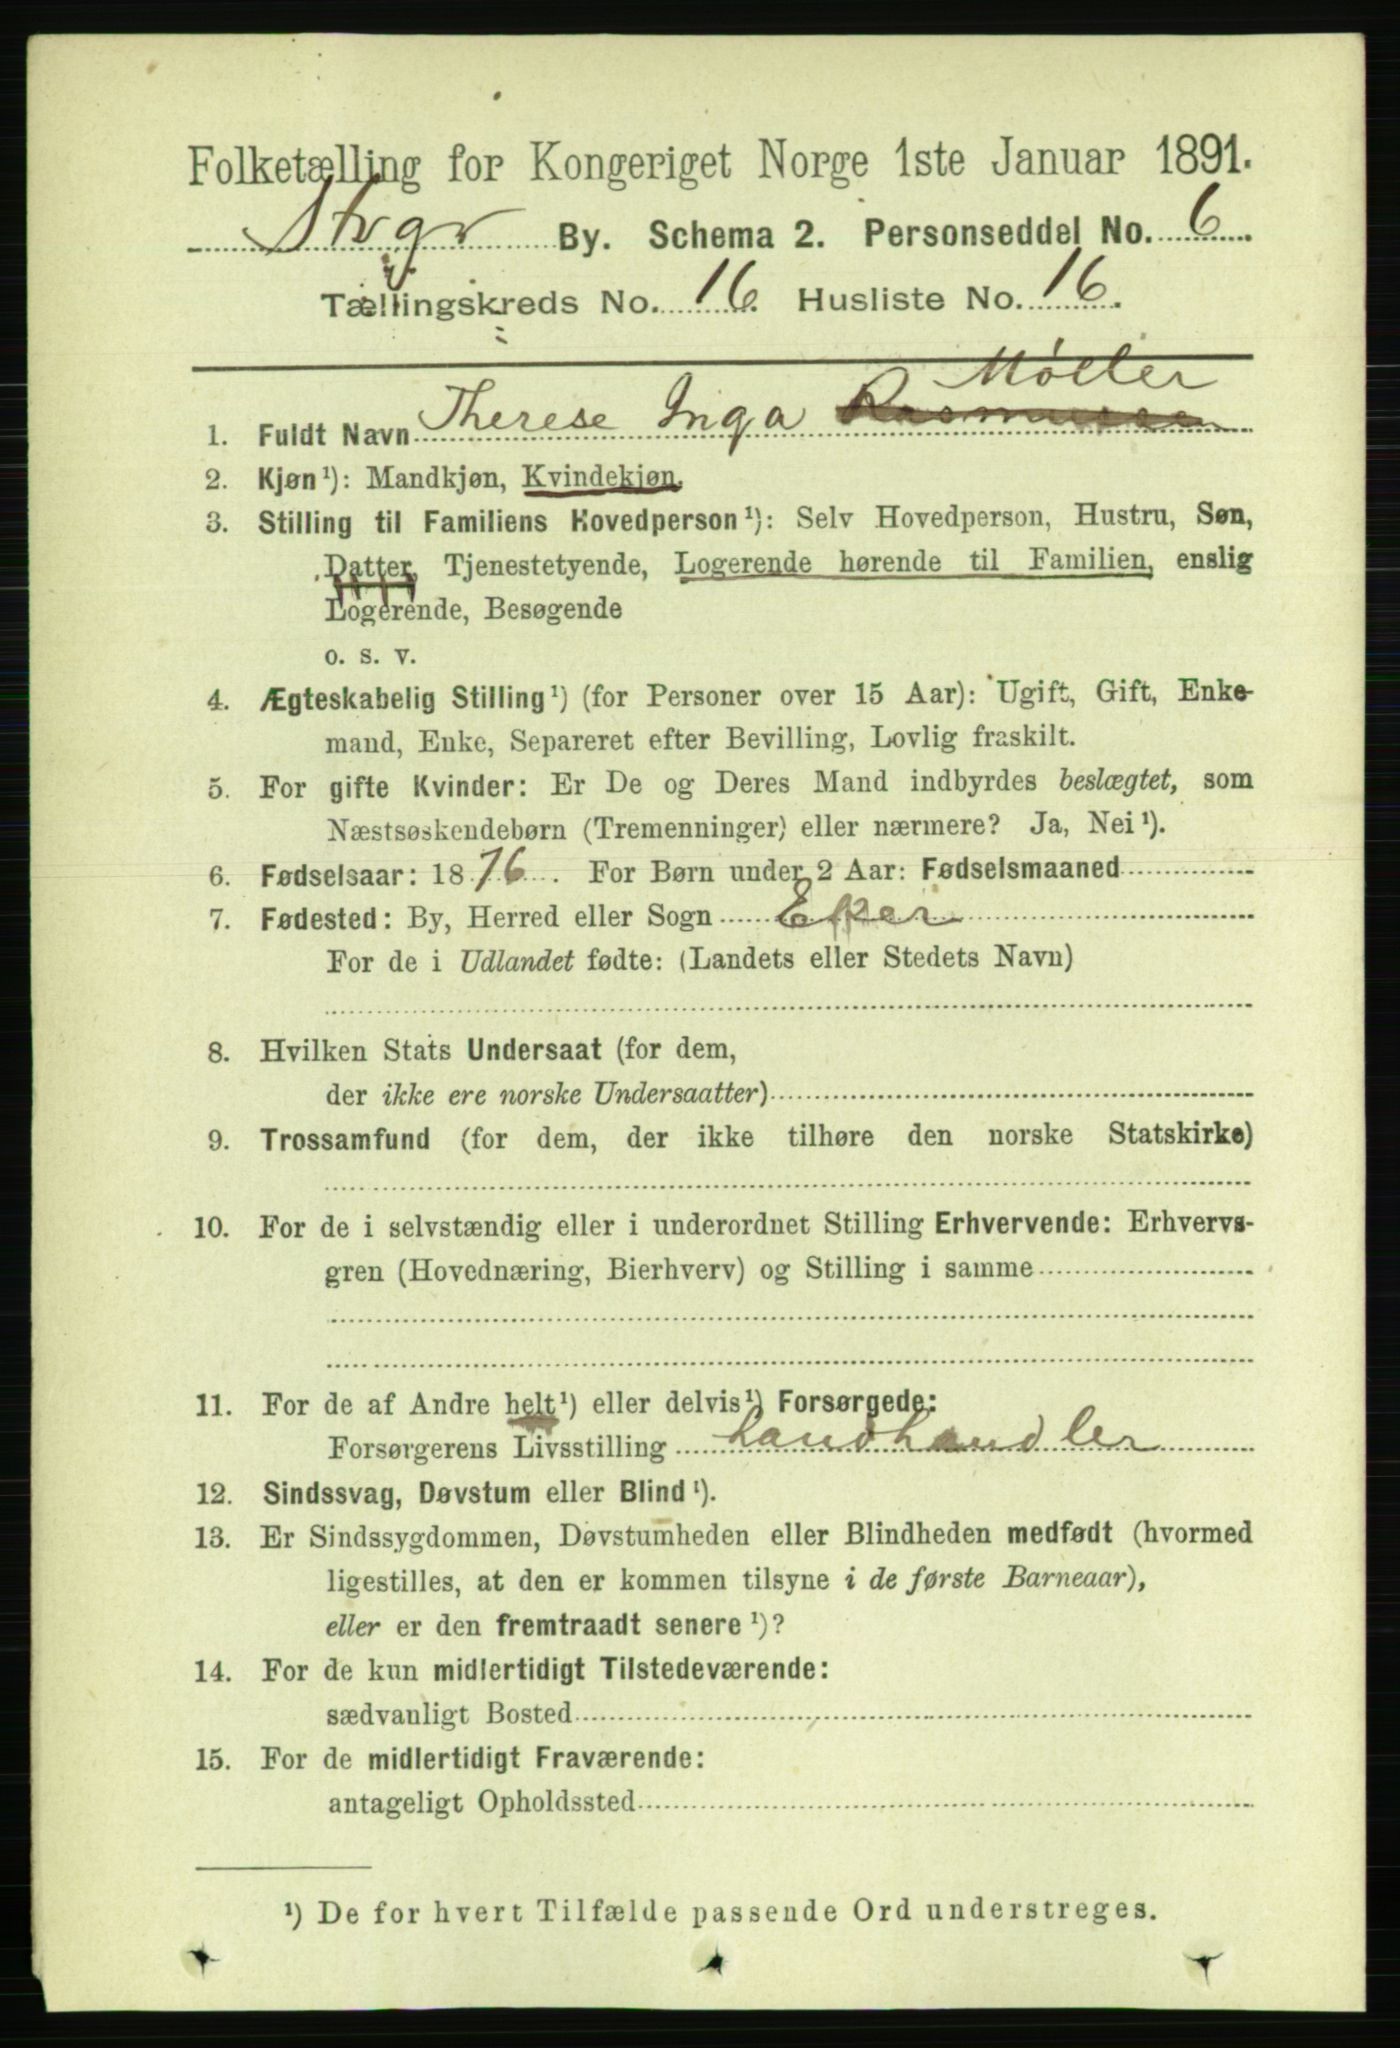 Folketælling for Kongeriget Norge 1ste Januar 1891.
By. Schema 2. Personseddel No. 6
Tællingskreds No. 16 Husliste No. 16.
Møller
1. Fuldt Navn Therese Inga Rasmussen
2. Kjøn¹): Mandkjøn, Kvindekjøn.
3. Stilling til Familiens Hovedperson¹): Selv Hovedperson, Hustru, Søn,
Datter, Tjenestetyende, Logerende hørende til Familien, enslig
Logerende, Besøgende
o. s. v.
4. Ægteskabelig Stilling¹) (for Personer over 15 Aar): Ugift, Gift, Enke-
mand, Enke, Separeret efter Bevilling, Lovlig fraskilt.
5. For gifte Kvinder: Er De og Deres Mand indbyrdes beslægtet, som
Næstsøskendebørn (Tremenninger) eller nærmere? Ja, Nei¹).
6. Fødselsaar: 1876. For Børn under 2 Aar: Fødselsmaaned
7. Fødested: By, Herred eller Sogn Eker
For de i Udlandet fødte: (Landets eller Stedets Navn)
8. Hvilken Stats Undersaat (for dem,
der ikke ere norske Undersaatter)
9. Trossamfund (for dem, der ikke tilhøre den norske Statskirke)
10. For de i selvstændig eller i underordnet Stilling Erhvervende: Erhvervs-
gren (Hovednæring, Bierhverv) og Stilling i samme
11. For de af Andre helt¹) eller delvis¹) Forsørgede:
Forsørgerens Livsstilling Landhandler
12. Sindssvag, Døvstum eller Blind¹).
13. Er Sindssygdommen, Døvstumheden eller Blindheden medfødt (hvormed
ligestilles, at den er kommen tilsyne i de første Barneaar),
eller er den fremtraadt senere¹)?
14. For de kun midlertidigt Tilstedeværende:
sædvanligt Bosted
15. For de midlertidigt Fraværende:
antageligt Opholdssted
¹) De for hvert Tilfælde passende Ord understreges.